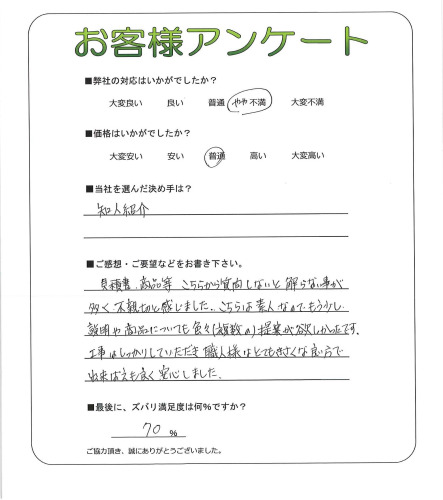 お客様アンケート
■弊社の対応はいかがでしたか？
大変良い 良い 普通 やや不満 大変不満
■価格はいかがでしたか？
大変安い 安い 普通 高い 大変高い
■当社を選んだ決め手は？
知人紹介
■ご感想・ご要望などをお書き下さい。
見積書、商品等 こちらから質問しないと解らない事が
多く不親切と感じました。こちらは素人なのでもう少し
説明や商品についても色々(複数の)提案が欲しかったです。
工事はしっかりしていただき職人様はとてもきさくな良い方で
出来ばえも良く安心しました。
■最後に、ズバリ満足度は何％ですか？
70 %
ご協力頂き、誠にありがとうございました。